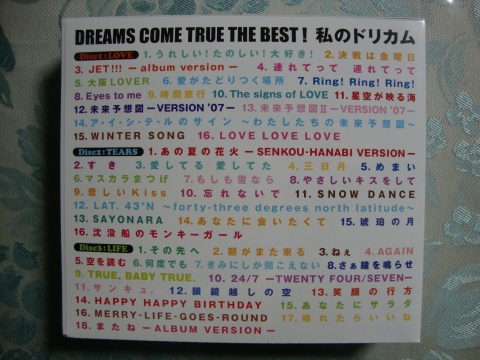 DREAMS COME TRUE THE BEST! 私のドリカム
Disc1:LOVE 1.うれしい!たのしい!大好き! 2.決戦は金曜日
3.JET!!! — album version — 4.連れてって 連れてって
5.大阪LOVER 6.愛がたどりつく場所 7.Ring! Ring! Ring!
8.Eyes to me 9.時間旅行 10.The signs of LOVE 11.星空が映る海
12.未来予想図 —VERSION '07— 13.未来予想図II —VERSION '07—
14.ア・イ・シ・テ・ルのサイン ～わたしたちの未来予想図～
15.WINTER SONG 16.LOVE LOVE LOVE
Disc2:TEARS 1.あの夏の花火 — SENKOU-HANABI VERSION —
2.すき 3.愛してる 愛してた 4.三日月 5.めまい
6.マスカラまつげ 7.もしも雪なら 8.やさしいキスをして
9.悲しいKiss 10.忘れないで 11.SNOW DANCE
12.LAT. 43°N ～forty-three degrees north latitude～
13.SAYONARA 14.あなたに会いたくて 15.琥珀の月
16.沈没船のモンキーガール
Disc3:LIFE 1.その先へ 2.朝がまた来る 3.ねぇ 4.AGAIN
5.空を読む 6.何度でも 7.きみにしか聞こえない 8.さぁ鐘を鳴らせ
9.TRUE, BABY TRUE. 10.24/7 —TWENTY FOUR/SEVEN—
11.サンキュ. 12.眼鏡越しの空 13.笑顔の行方
14.HAPPY HAPPY BIRTHDAY 15.あなたにサラダ
16.MERRY-LIFE-GOES-ROUND 17.晴れたらいいね
18.またね —ALBUM VERSION —